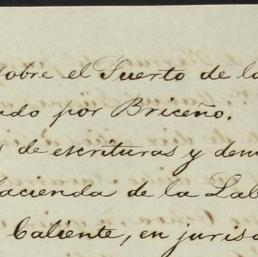 sobre el Puerto de la
ado por Briceño.
de escrituras y dem
Hacienda de la Lab
Caliente, en jurisd